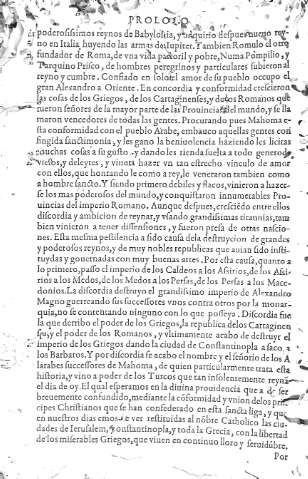 PROLOGO
poderosissimos reynos de Babylonia, y adquirio despues nueuo reyno
no en Italia, huyendo las armas de Iupiter. Y tambien Romulo el otro
fundador de Roma, de vna vida pastoril y pobre, Numa Pompilio, y
Tarquino Prisco, de hombres peregrinos y particulares subieron al
reyno y cumbre. Confiado en solo el amor de su pueblo occupo el
gran Alexandro a Oriente. En concordia y conformidad crescieron
las cosas de los Griegos, de los Cartaginenses, y de los Romanos que
fueron señores de la mayor parte de las Prouincias del mundo, y se lla
maron vencedores de todas las gentes. Procurando pues Mahoma e-
sta conformidad con el pueblo Arabe, embauco aquellas gentes con
fingida sanctimonia, y les gano la beniuolencia haziendo les licitas
muchas cosas a su gusto, y dandoles rienda suelta a todo genero de
vicios, y deleytes, y vino a hazer vn tan estrecho vinculo de amor
con ellos, que honrando le como a rey, le veneraron tambien como
a hombre sancto. Y siendo primero debiles y flacos, vinieron a hazer-
se los mas poderosos del mundo, y conquistaron innumerables Pro
uincias del imperio Romano. Aunque despues, cresciédo entre ellos
discordia y ambicion de reynar, y vsando grandissimas tirannias, tam
bien vinieron a tener dissensiones, y fueron presa de otras nascio-
nes. Esta mesma pestilencia a sido causa de la destruycion de grandes
y poderosos reynos, y de muy nobles republicas que auian sido insti-
tuydas y gouernadas con muy buenas artes. Por esta causa, quanto a
lo primero, passo el imperio de los Caldeos a los Asirios, de los Asi-
rios a los Medos, de los Medos a los Persas, de los Persas a los Mace-
donios. La discordia destruyo el grandissimo imperio de Alexandro
Magno guerreando sus successores vnos contra otros por la monar-
quia, no se contentando ninguno con lo que posseya. Discordia fue
la que derribo el poder de los Griegos, la republica de los Cartaginen
ses, y el poder de los Romanos, y vltimamente acabo de destruyr el
imperio de los Griegos dando la ciudad de Constantinopla a saco, a
los Barbaros. Y por discordia se acabo el nombre y el señorio de los A
larabes successores de Mahoma, de quien particularmente trata esta
historia, y vino a poder de los Turcos que tan insolentemente reyna
el dia de oy. El qual esperamos en la diuina prouidencia que a de ser
breuemente confundido, mediante la cóformidad y vnion de los prin
cipes Christianos que se han confederado en esta sancta liga, y que
en nuestros dias emos de ver restituidas al nóbre Catholico las ciu-
dades de Ierusalem, y Constantinopla, y toda la Grecia, con la libertad
de los miserables Griegos, que viuen en continuo lloro y seruidúbre.
Por